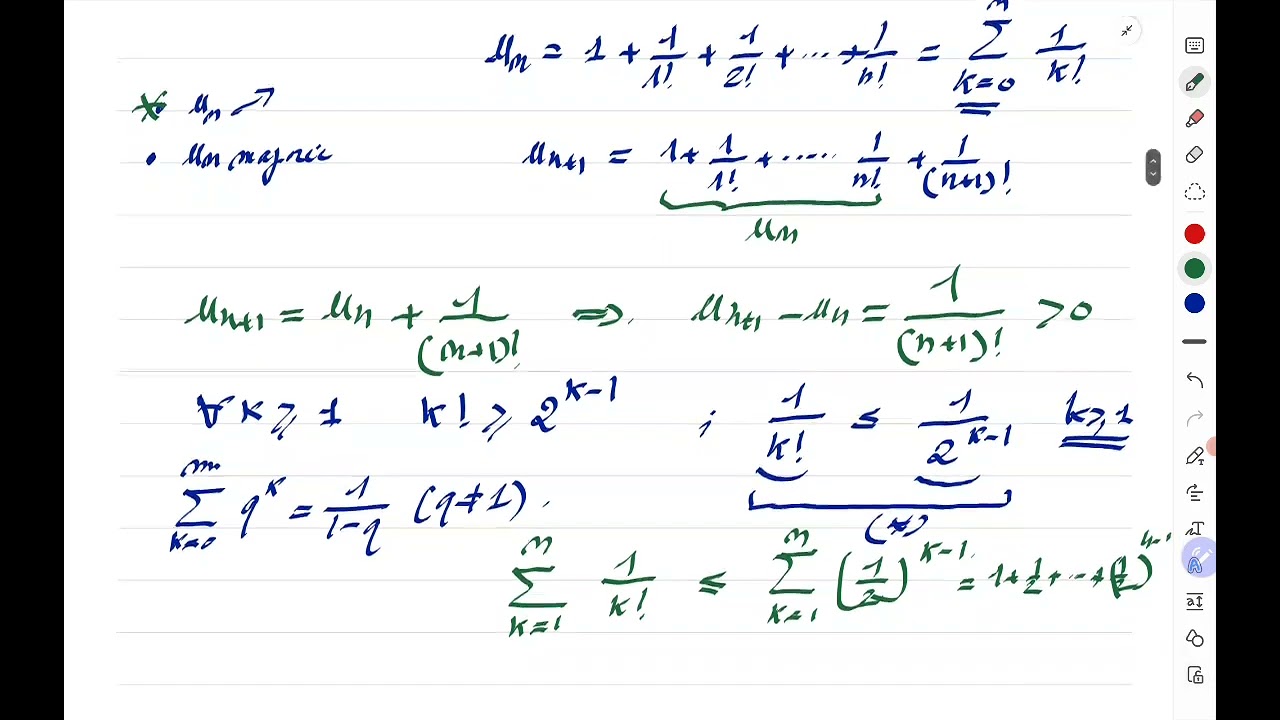 Un = 1 + 1/1! + 1/2! + ... + 1/n! = Σ_{k=0}^{n} 1/k!
* Un ↗
• Un majorée
Un+1 = 1 + 1/1! + ..... 1/n! + 1/(n+1)!
Un
Un+1 = Un + 1/(n+1)! ⇒ Un+1 - Un = 1/(n+1)! > 0
∀ k ⩾ 1 k! ⩾ 2^{k-1} ; 1/k! ≤ 1/2^{k-1} k ⩾ 1
Σ_{k=0} q^k = 1/(1-q) (q≠1).
(*)
Σ_{k=1}^{n} 1/k! ≤ Σ_{k=1}^{n} (1/2)^{k-1} = 1 + 1/2 + ... + (1/2)^{n-1}